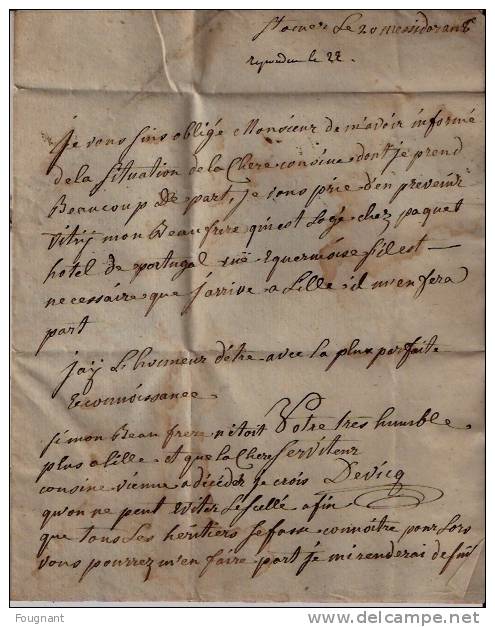 St omer Le 20 messidor an 8e
repondu le 22.
je vous suis obligé Monsieur de m'avoir informé
de la situation de la Chere cousine dont je prend
Beaucoup de part, je vous prie d'en prevenir
vitry mon Beaufrere qui est Logé chez paquet
hotel de portugal rüe Equermoise s'il est
necessaire que j'arrive a Lille il m'en fera
part
jaÿ L'honneur d'être avec la plux parfaite
Reconnoissance
Votre tres humble
serviteur
Devicq
si mon Beau frere n'etoit
plus a lille et que la Chere
cousine vienne a décéder je crois
qu'on ne peut eviter Lescellé afin
que tous Les héritiers se fasse connoitre pour Lors
vous pourrez m'en faire part je mi renderai de suit
Fougnant
delcampe.net